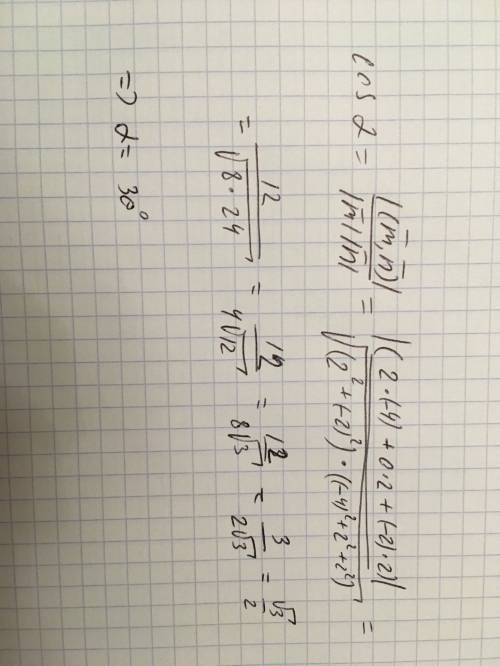 cos α = |(m̅, n̅)| / |m̅| |n̅| = |(2·(-4) + 0·2 + (-2)·2)| / √((2² + (-2)²) · ((-4)² + 2² + 2²)) =
= 12 / √(8·24) = 12 / 4√12 = 12 / 8√3 = 3 / 2√3 = √3 / 2
=> α = 30°